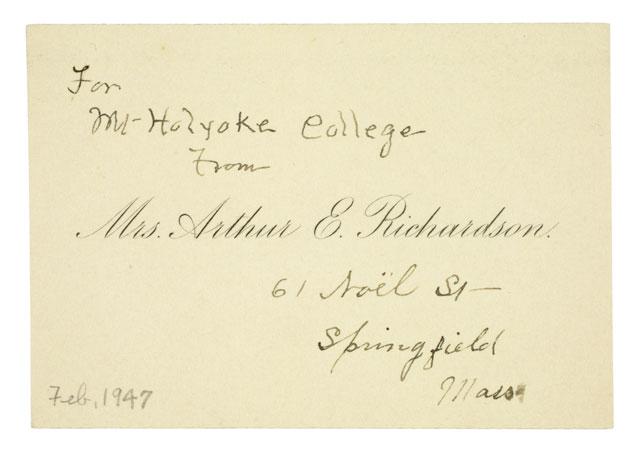 For
Mt Holyoke College
From
Mrs. Arthur E. Richardson.
61 Noël St
Springfield
Mass
Feb, 1947